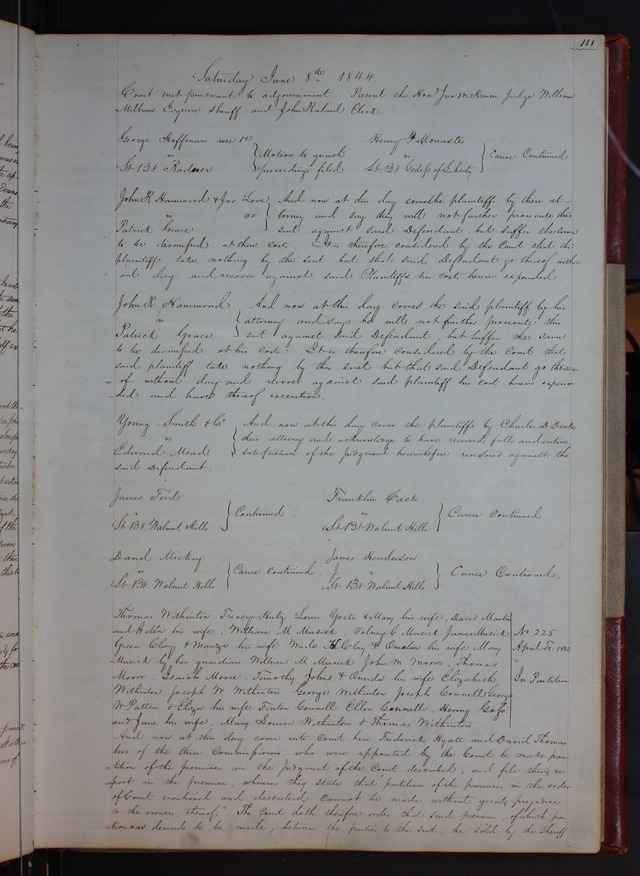 111
Saturday June 8th 1844.
Court met pursuant to adjournment. Present the Honl Jno M Krum Judge William
Milburn Esquire Sheriff and John Ruland Clerk
George Hoffman use &c
"
St Bt Raderer
} Motion to quash
proceedings filed
Henry
"
St Bt of Liberty
} Cause Continued
John R Hammond & Jas Love
" no
Patrick Grace
} And now at this day comes the plaintiffs by their at
torney and say they will not further prosecute this
suit against said Defendant but suffer the same
to be dismissed at their costs. It is therefore considered by the Court that the
plaintiffs take nothing by this suit but that said Defendant go thereof with
out day and recover against said Plaintiffs his costs herein expended.
John R Hammond
"
Patrick Grace
} And now at this day comes the said plaintiff by his
attorney and says he will not further prosecute this
suit against said Defendant but suffer the same
to be dismissed at his costs. It is therefore considered by the Court that
said plaintiff take nothing by this suit but that said Defendant go there
of without day and recover against said plaintiff his cost herein expen
ded and have thereof execution.
Young Smith & Co
"
Edward Mead
} And now at this day come the plaintiffs by Charles D Drake
their attorney and acknowledge to have received full and entire
satisfaction of the judgment heretofore rendered against the
said Defendant.
James Ford
"
St Bt Walnut Hills
} Continued
Franklin
"
St Bt Walnut Hills
} Cause Continued.
David Mickey
"
St Bt Walnut Hills
} Cause continued.
James Henderson
"
St Bt Walnut Hills
} Cause Continued.
Thomas Withinton Treacy Hutz Louis Yostz & Mary his wife, David Martin
and Hellen his wife, William M Musick Valney C Musick James Musick
Green Clay & his wife Wade H Clay & his wife Mary
Musick by her guardian William M Musick John M Moore, Thomas
Moore, Louisa Moore, Timothy Johns & his wife Elizabeth
Withinton Joseph W Withinton George Withinton Joseph Connell George
W Patten & Eliza his wife Finton Connell Ellen Connell, Henry
and Jane his wife, Mary Louisa Withinton & Thomas Withinton
No 225
April T. 1843
"
In Partition
And now at this day come into Court here Frederick Hyatt and David Thomas
two of the three Commissioners who were appointed by the Court to make par
tition of the premises in the judgment of the Court described, and file their re
port in the premises, wherein they state that "partition of the premises in the order
of Court mentioned and described cannot be made without great prejudice
to the owners thereof." The Court doth therefore order that said premises, of which par
tition was desired to be made, between the parties to this suit, be sold by the Sheriff